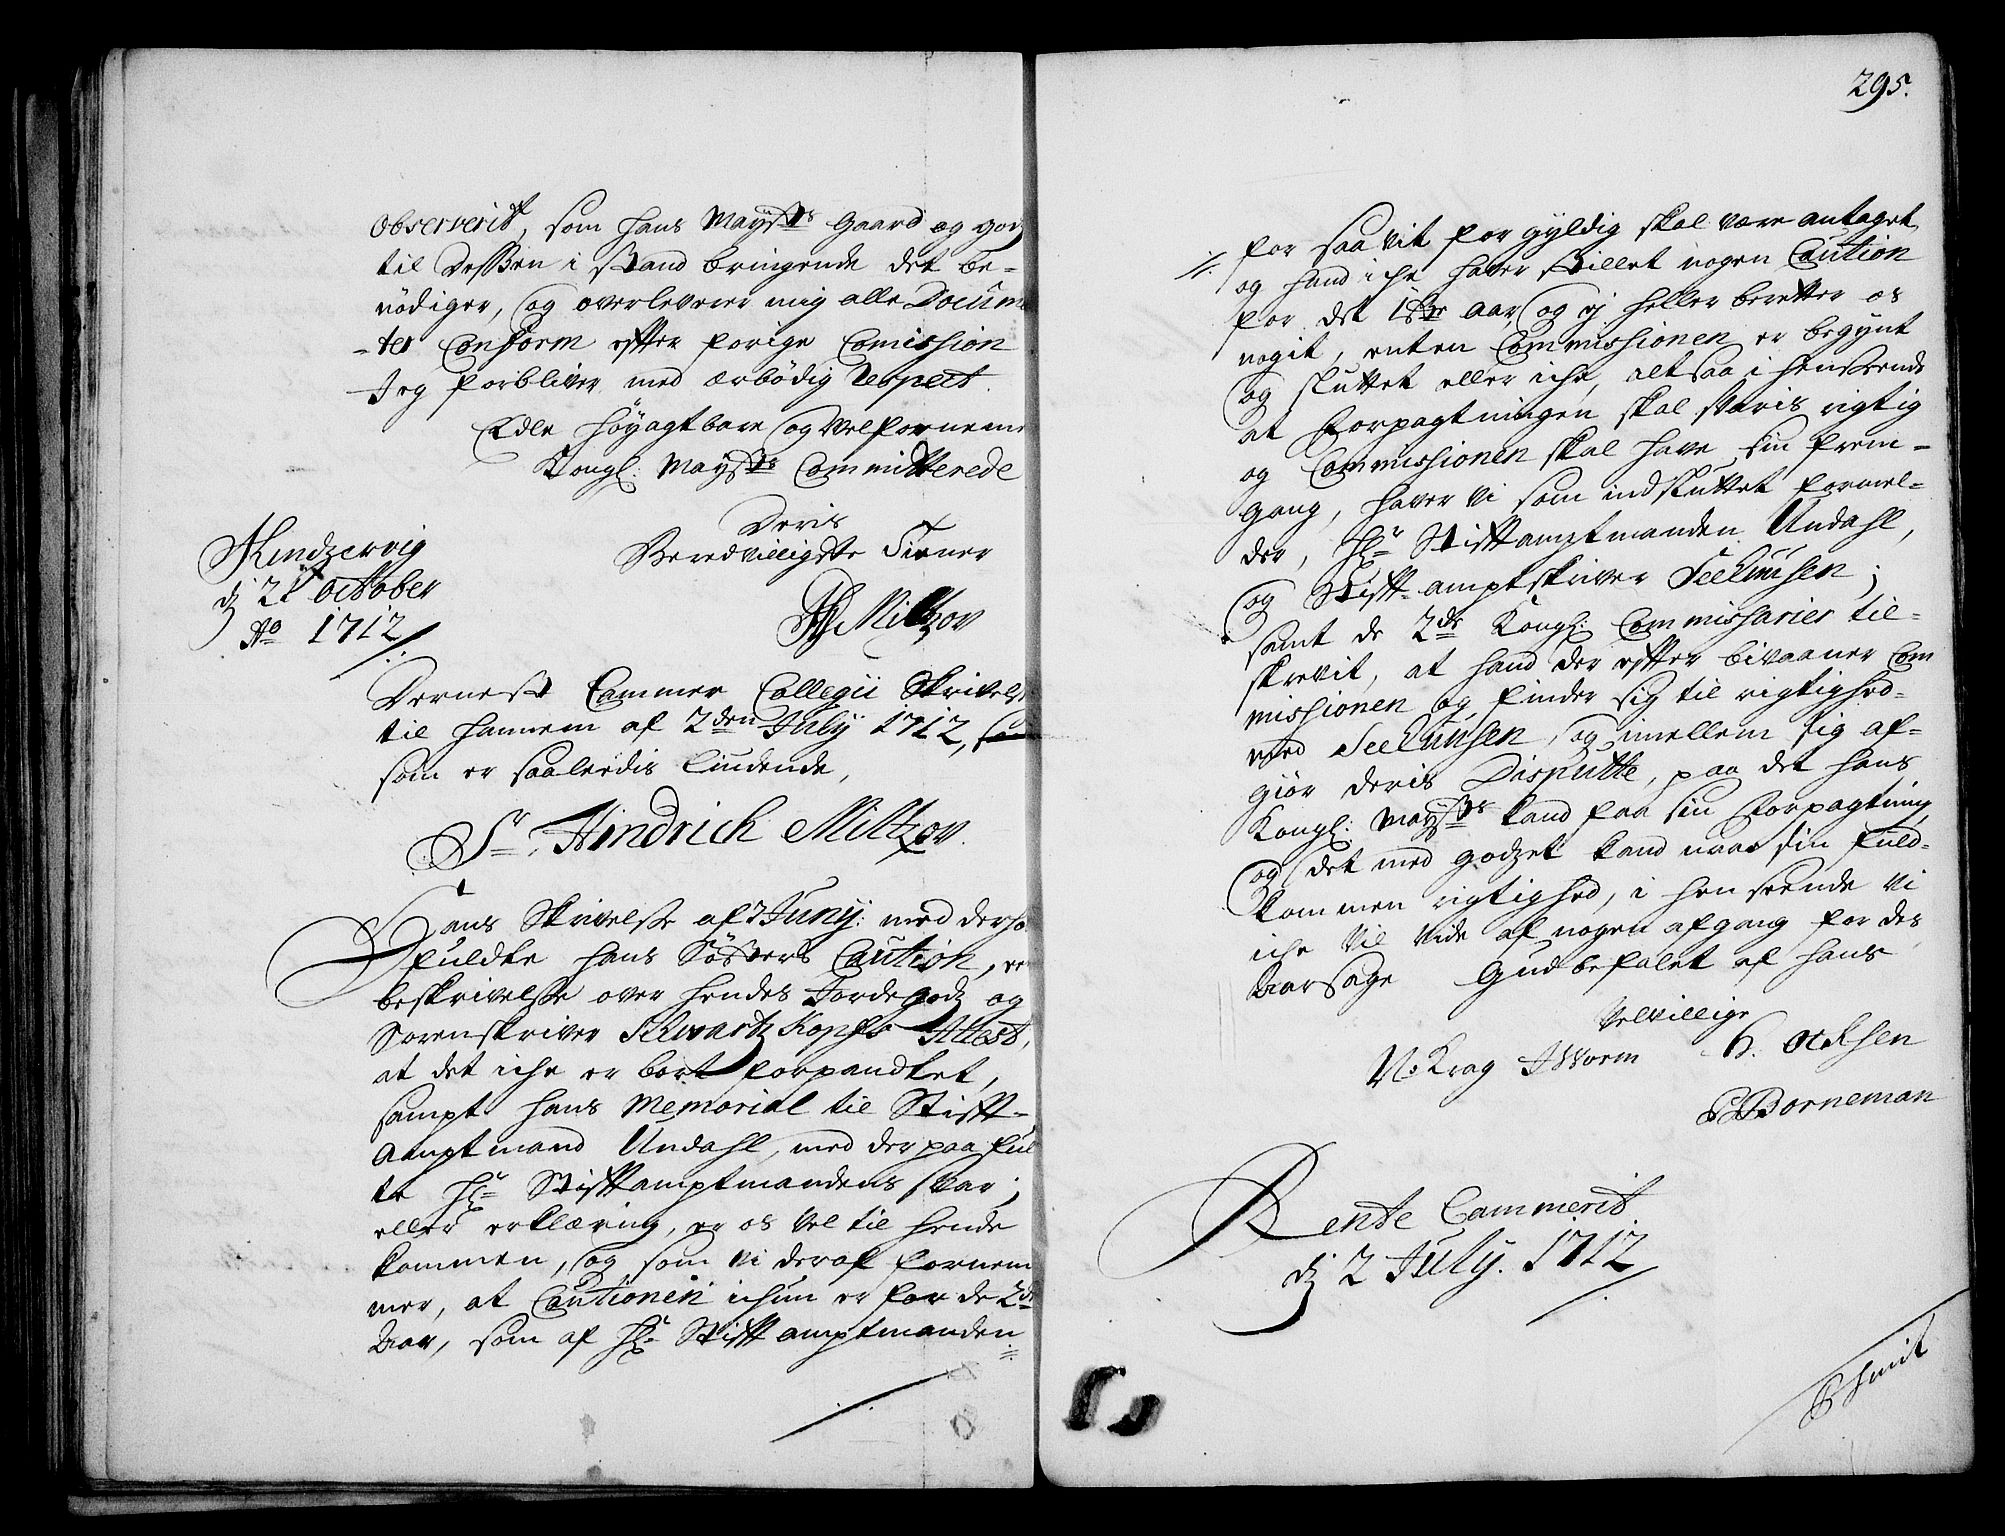 observerit, som hans Mayst:s Gaard og god
til dessen i stand bringende det be-
nödiger, og overleverer mig alle Docum
-ter Conform efter forige Comission
Jeg forbliver med ærbödig Respect.
Edle höyagtbare og velfornemme
Kongl: Mayst:s Committerede
Deris
Beredvilligste Tienner
HMiltzov
Hindzervig
dj 21 october
Ao 1712
Dernest Cammer Collegii Skrivels
til hannem af 2den July 1712,
som er saaleedis liudende,
Sr. Hindrich Miltzov.
Hans Skrivelse af 7 Juny: med derho
fuldte hans Sösters Caution, 
beskrivelse over hendes Jordegodz og
Sorenskriver Schwartz Kopfs Attest,
at det iche er bort forpandtet,
sampt hans Memorial til Stift-
Amptmand Undahl, med der paa ful
te Hr: Stiftamptmandens svar;
eller erklæring, er os vel til hende
kommen, og som vi deraf fornem
mer, at Cautionen ichun er for de 2de
Aar, som af Hr: Stiftamptmanden
295.
for saavit for gyldig skal være antaget,
og hand iche haver stillet nogen Caution
for det 1ste Aar, og ej heller beretter os
nogit, enten Commissionen er begynt
og sluttet eller iche, altsaa i henseende
at Forpagtningen skal svaris rigtig
og Commissionen skal have sin frem-
gang, haver vi som indsluttet formel-
der, Hr: Stiftamptmanden Undahl,
og Stift-amptskriver Seehuusen;
samt de 2de Kongl: Commissarier til-
skrevit, at hand der efter bivaaner Com
missionen og finder sig til rigtighed-
med Seehuusen, og imellem sig af-
giör deris Disputte, paa det hans
Kongl: Mayst:s kand faa sin Forpagtning
og det med godzet kand naae sin fuld-
kommen rigtighed, i hen seende vi
iche vil vide af nogen afgang for des
Aarsage Gud befalet af hans
Velvillige
N. Krag JWorm H. ochsen
Borneman
Rente Cammerit
dj 2 July. 1712
Schmit